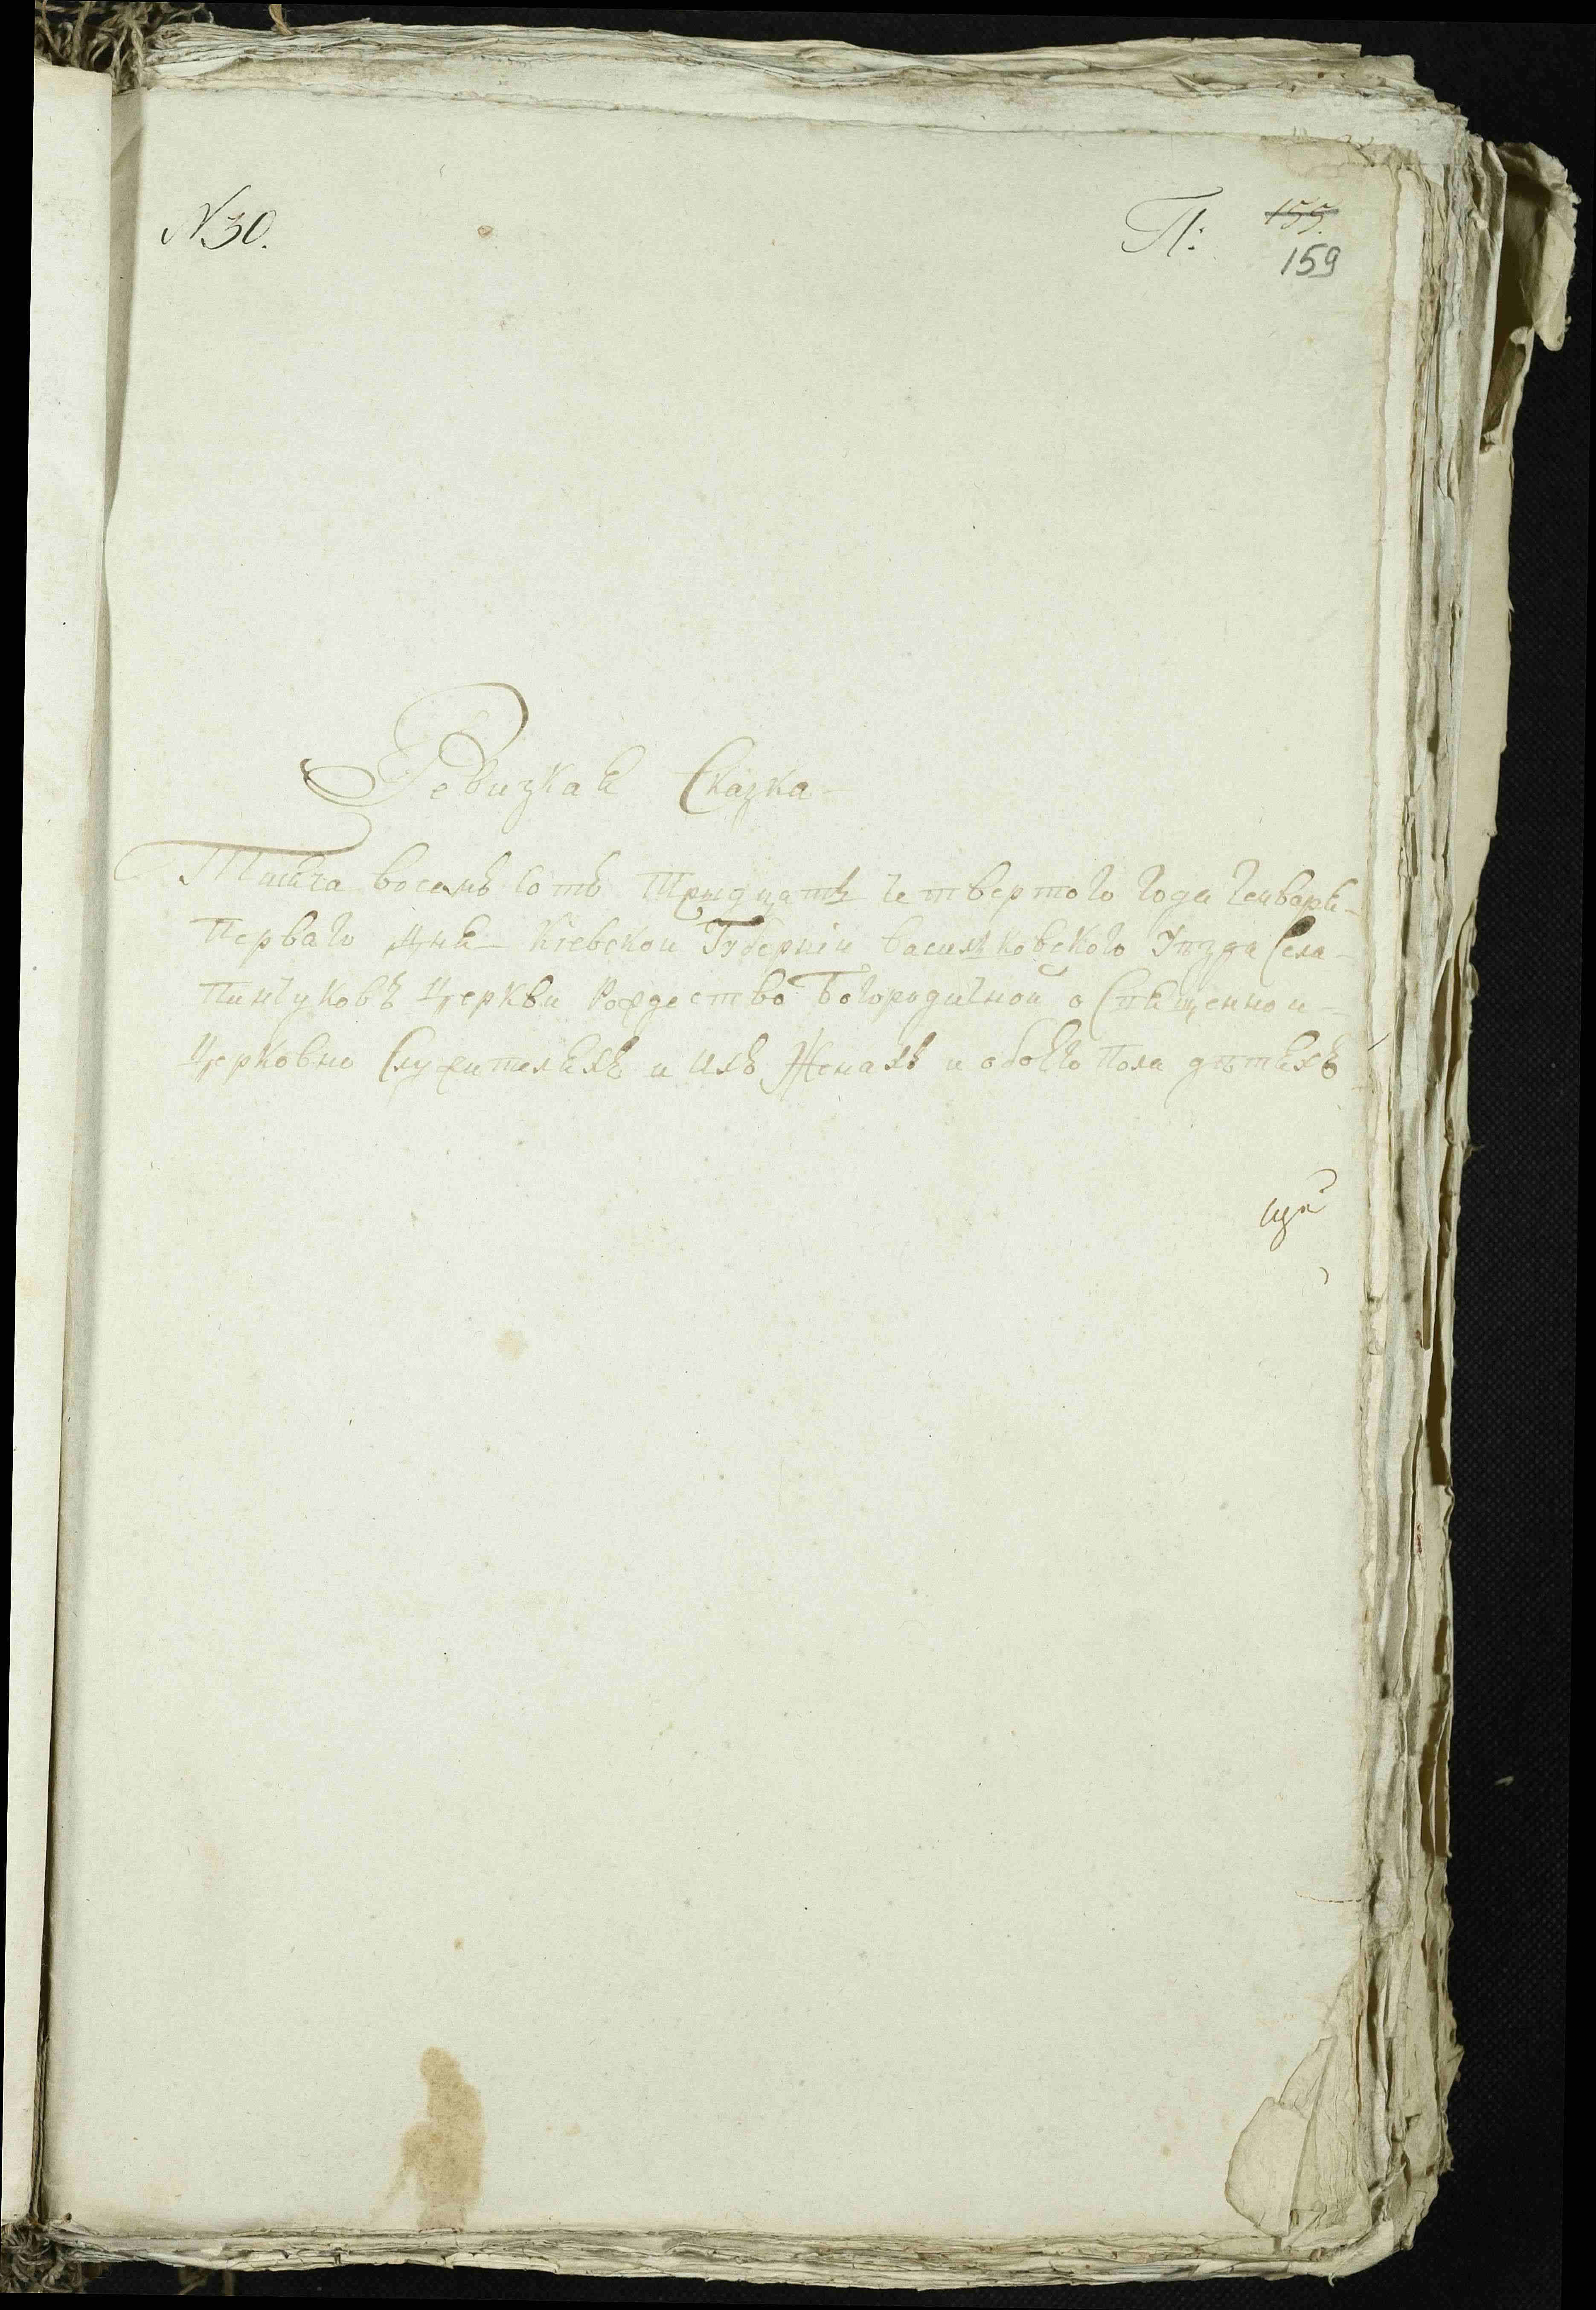 N 30.
П:
155.
159
Ревизкая Сказка
Тысяча восемъ сотъ Тридцать четвертого года генваря
перваго дня Кіевской Губерніи василковского Уѣзда Села
Пинчуковъ Церкви Рождество Богородичной о Священно и
Церковно Служителяхъ и ихъ Женахъ и обоего пола дѣтяхъ